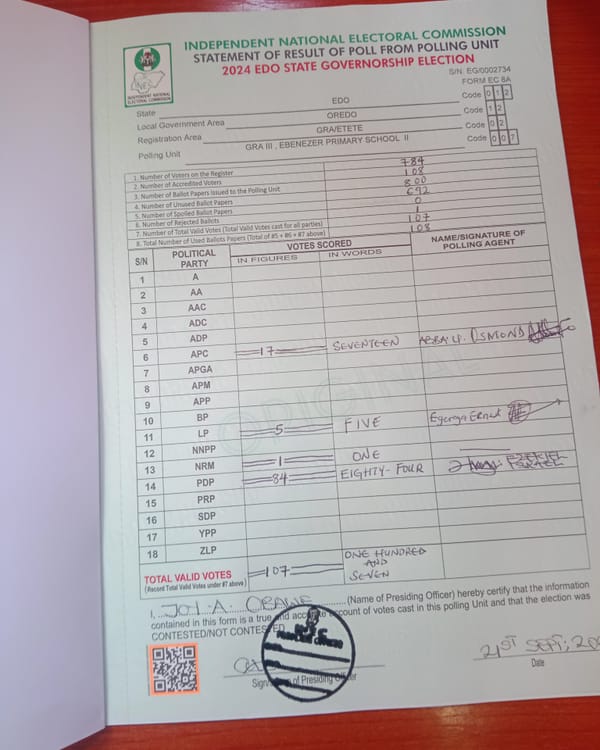 INDEPENDENT NATIONAL ELECTORAL COMMISSION
STATEMENT OF RESULT OF POLL FROM POLLING UNIT
2024 EDO STATE GOVERNORSHIP ELECTION
S/N: EG/0002734
FORM EC 8A
INEC
INDEPENDENT NATIONAL ELECTORAL COMMISSION
State EDO Code 0 1 2
Local Government Area OREDO Code 1 2
Registration Area GRA/ETETE Code 0 2
Polling Unit GRA III , EBENEZER PRIMARY SCHOOL II Code 0 0 7
1. Number of Voters on the Register 784
2. Number of Accredited Voters 108
3. Number of Ballot Papers Issued to the Polling Unit 800
4. Number of Unused Ballot Papers 692
5. Number of Spoiled Ballot Papers 0
6. Number of Rejected Ballots 1
7. Number of Total Valid Votes (Total Valid Votes cast for all parties) 107
8. Total Number of Used Ballots Papers (Total of #5 + #6 + #7 above) 108
S/N POLITICAL PARTY VOTES SCORED NAME/SIGNATURE OF POLLING AGENT
IN FIGURES IN WORDS
1 A
2 AA
3 AAC
4 ADC
5 ADP
6 APC 17 SEVENTEEN OSMOND
7 APGA
8 APM
9 APP
10 BP
11 LP 5 FIVE
12 NNPP
13 NRM 1 ONE
14 PDP 84 EIGHTY-FOUR EZEKIEL ISRAEL
15 PRP
16 SDP
17 YPP
18 ZLP
ORIGINAL
TOTAL VALID VOTES 107 ONE HUNDRED AND SEVEN
(Record Total Valid Votes under #7 above)
I, JOY A. (Name of Presiding Officer) hereby certify that the information
contained in this form is a true and accurate account of votes cast in this polling Unit and that the election was
CONTESTED/NOT CONTESTED
INEC
PRESIDING OFFICER
21ST SEPT; 20
Signature of Presiding Officer Date